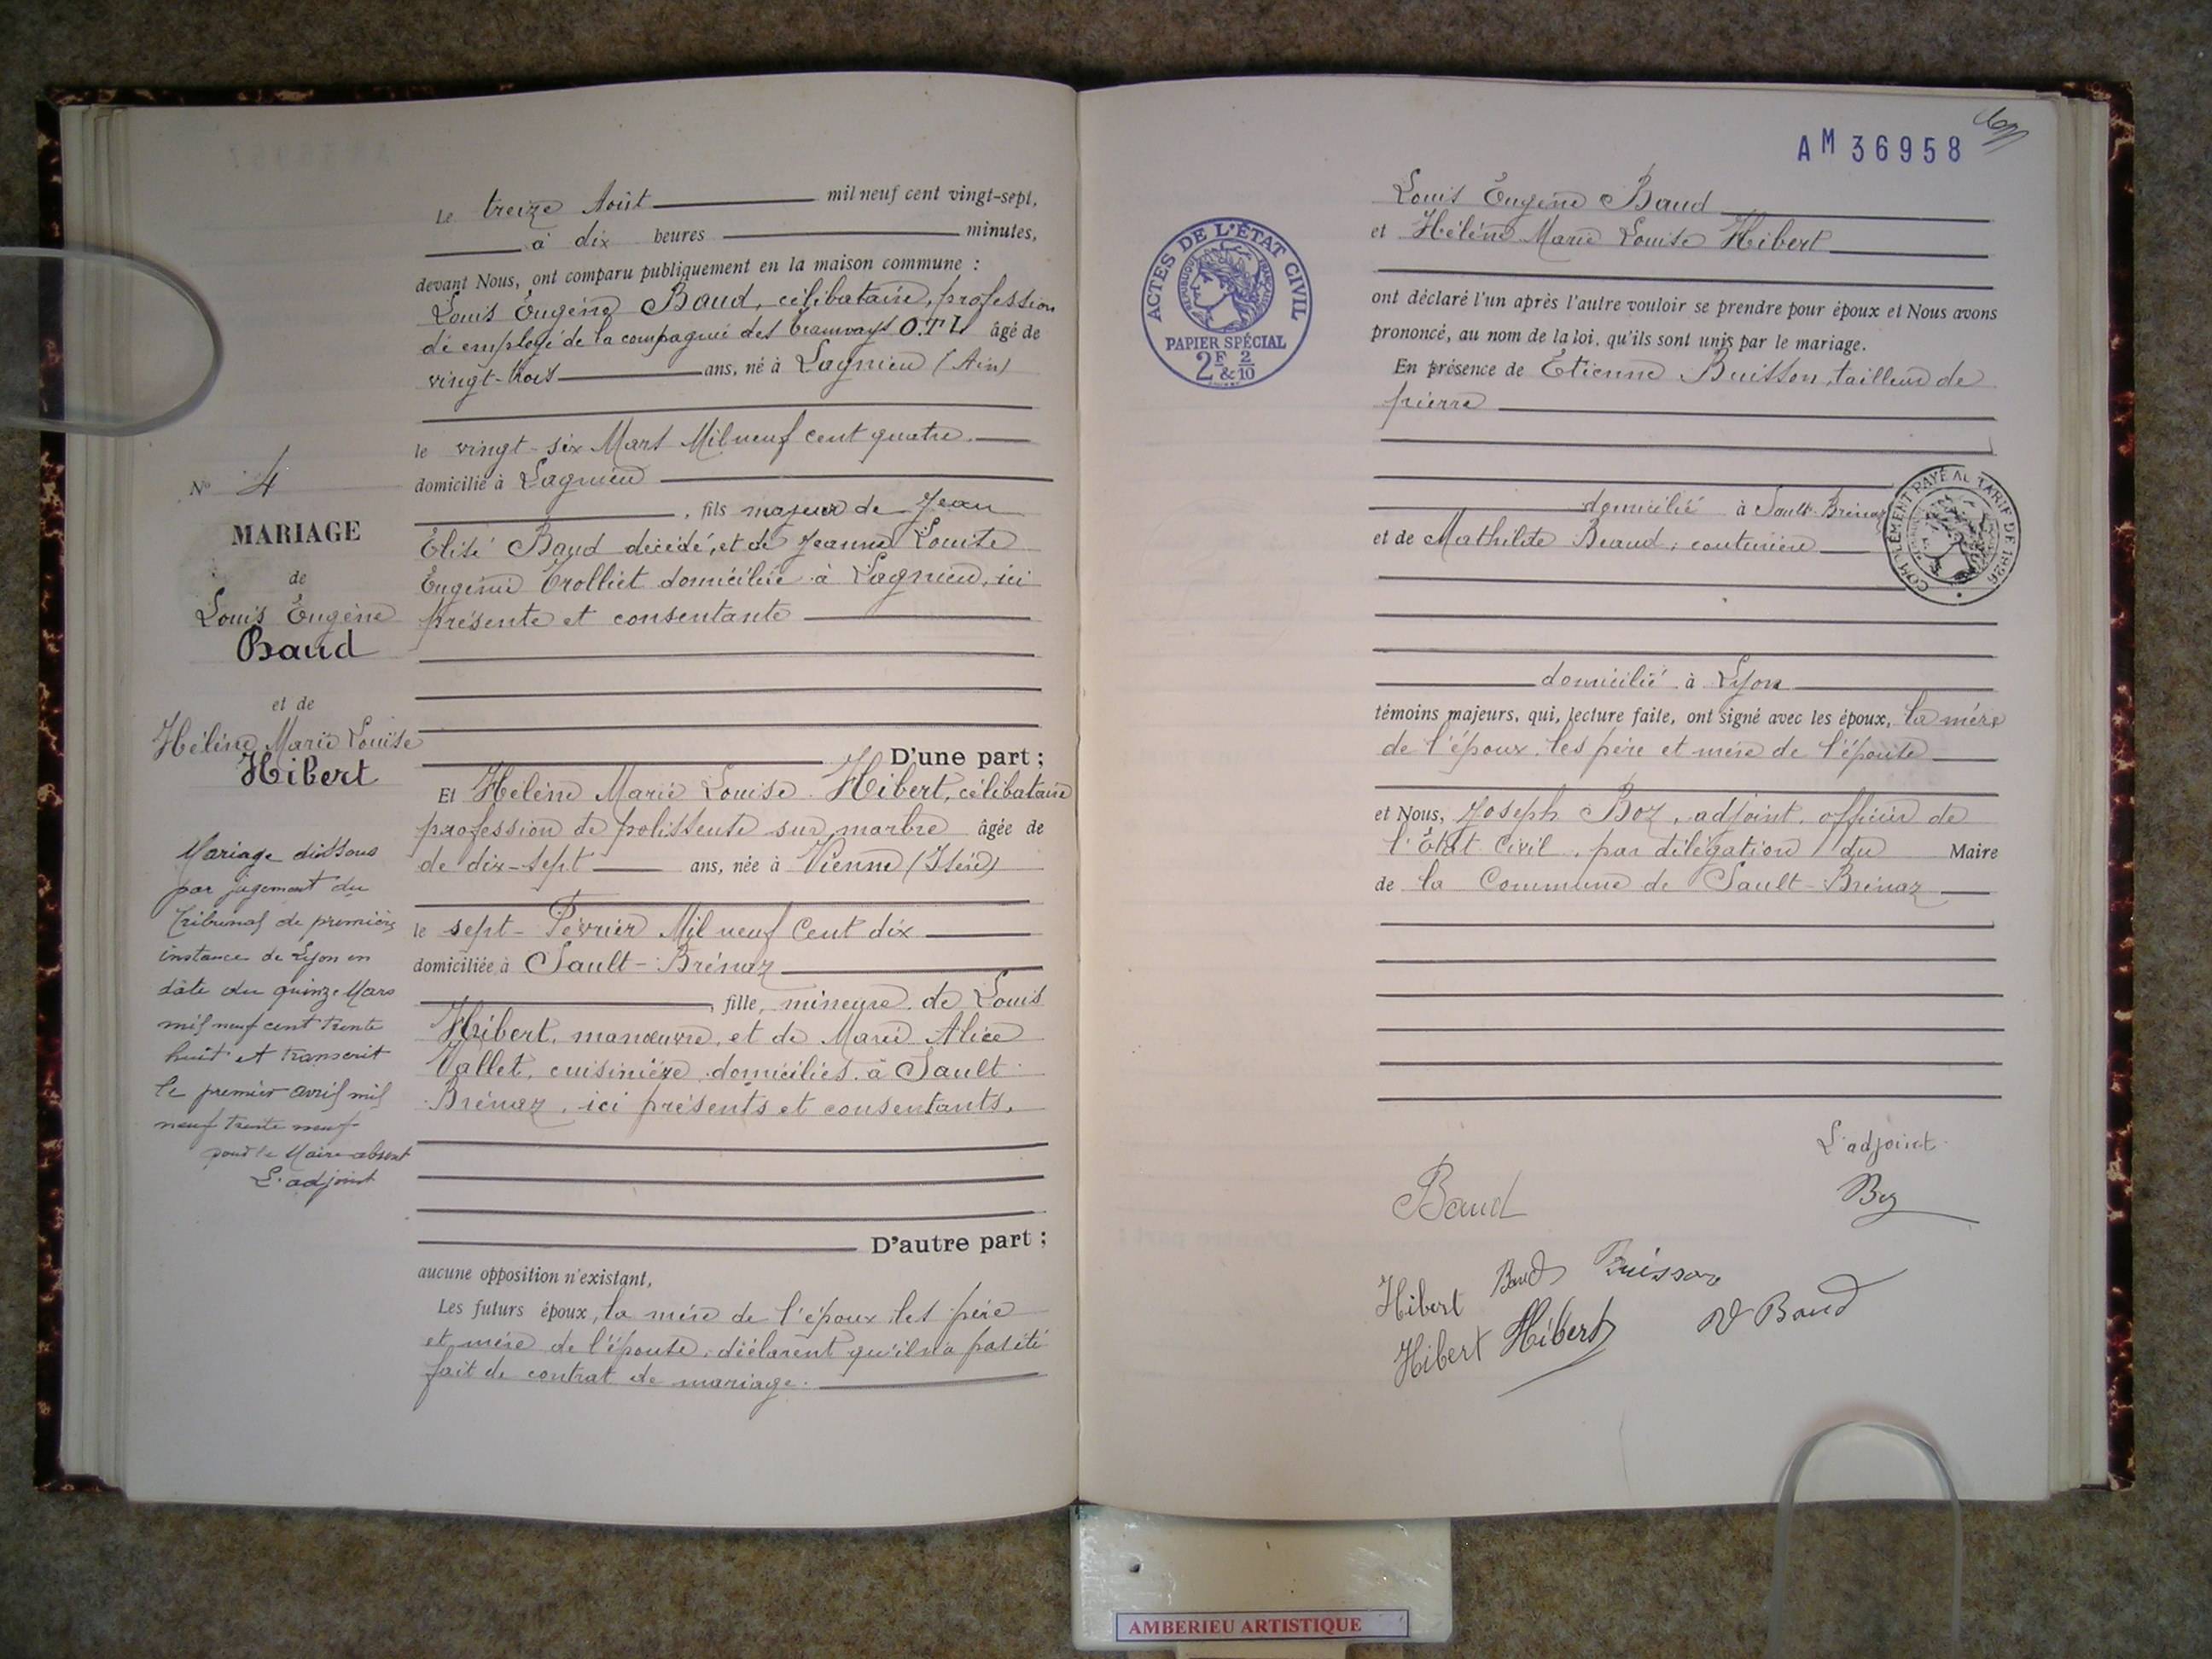 Le treize Août mil neuf cent vingt-sept,
à dix heures minutes,
devant Nous, ont comparu publiquement en la maison commune :
Louis Eugène Baud, célibataire, profession
de employé de la compagnie des tramways O.T.L âgé de
vingt-trois ans, né à Lagnieu (Ain)
le vingt-six Mars Mil neuf cent quatre
domicilié à Lagnieu
, fils majeur de Jean
Élisé Baud décédé, et de Jeanne Louise
Eugénie Trolliet domiciliée à Lagnieu, ici
présente et consentante
D'une part ;
Et Hélène Marie Louise Hibert, célibataire
profession de polisseuse sur marbre âgée de
de dix-sept ans, née à Vienne (Isère)
le sept Février Mil neuf Cent dix
domiciliée à Sault-Brénaz
, fille mineure de Louis
Hibert, manœuvre, et de Marie Alice
Vallet, cuisinière domiciliés à Sault-
Brénaz, ici présents et consentants.
D'autre part ;
aucune opposition n'existant,
Les futurs époux, la mère de l'époux, les père
et mère de l'épouse, déclarent qu'il n'a pas été
fait de contrat de mariage.
N° 4
MARIAGE
de
Louis Eugène
Baud
et de
Hélène Marie Louise
Hibert
Mariage dissous
par jugement du
Tribunal de première
instance de Lyon en
date du quinze Mars
mil neuf cent trente
huit et transcrit
le premier avril mil
neuf trente neuf
pour le Maire absent
L'adjoint
AM 36958
ACTES DE L'ÉTAT CIVIL
RÉPUBLIQUE FRANÇAISE
PAPIER SPÉCIAL
2F & 2/10
Louis Eugène Baud
et Hélène Marie Louise Hibert
ont déclaré l'un après l'autre vouloir se prendre pour époux et Nous avons
prononcé, au nom de la loi, qu'ils sont unis par le mariage.
En présence de Étienne Buisson, tailleur de
pierre
domicilié à Sault-Brénaz
COMPLÉMENT PAYÉ AU TARIF DE 1926
et de Mathilde Beaud, couturière
domicilié à Lyon
témoins majeurs, qui, lecture faite, ont signé avec les époux, la mère
de l'époux, les père et mère de l'épouse
et Nous, Joseph Boz, adjoint, officier de
l'État Civil, par délégation du Maire
de la Commune de Sault-Brénaz
L'adjoint
Baud
Boz
Hibert Baud Buisson
Hibert Hibert V Baud
AMBERIEU ARTISTIQUE